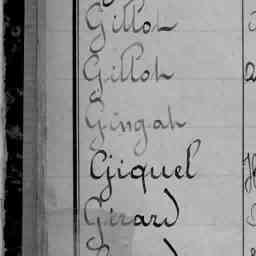 Gillot
Gillot
Gingat
Giquel
Girard